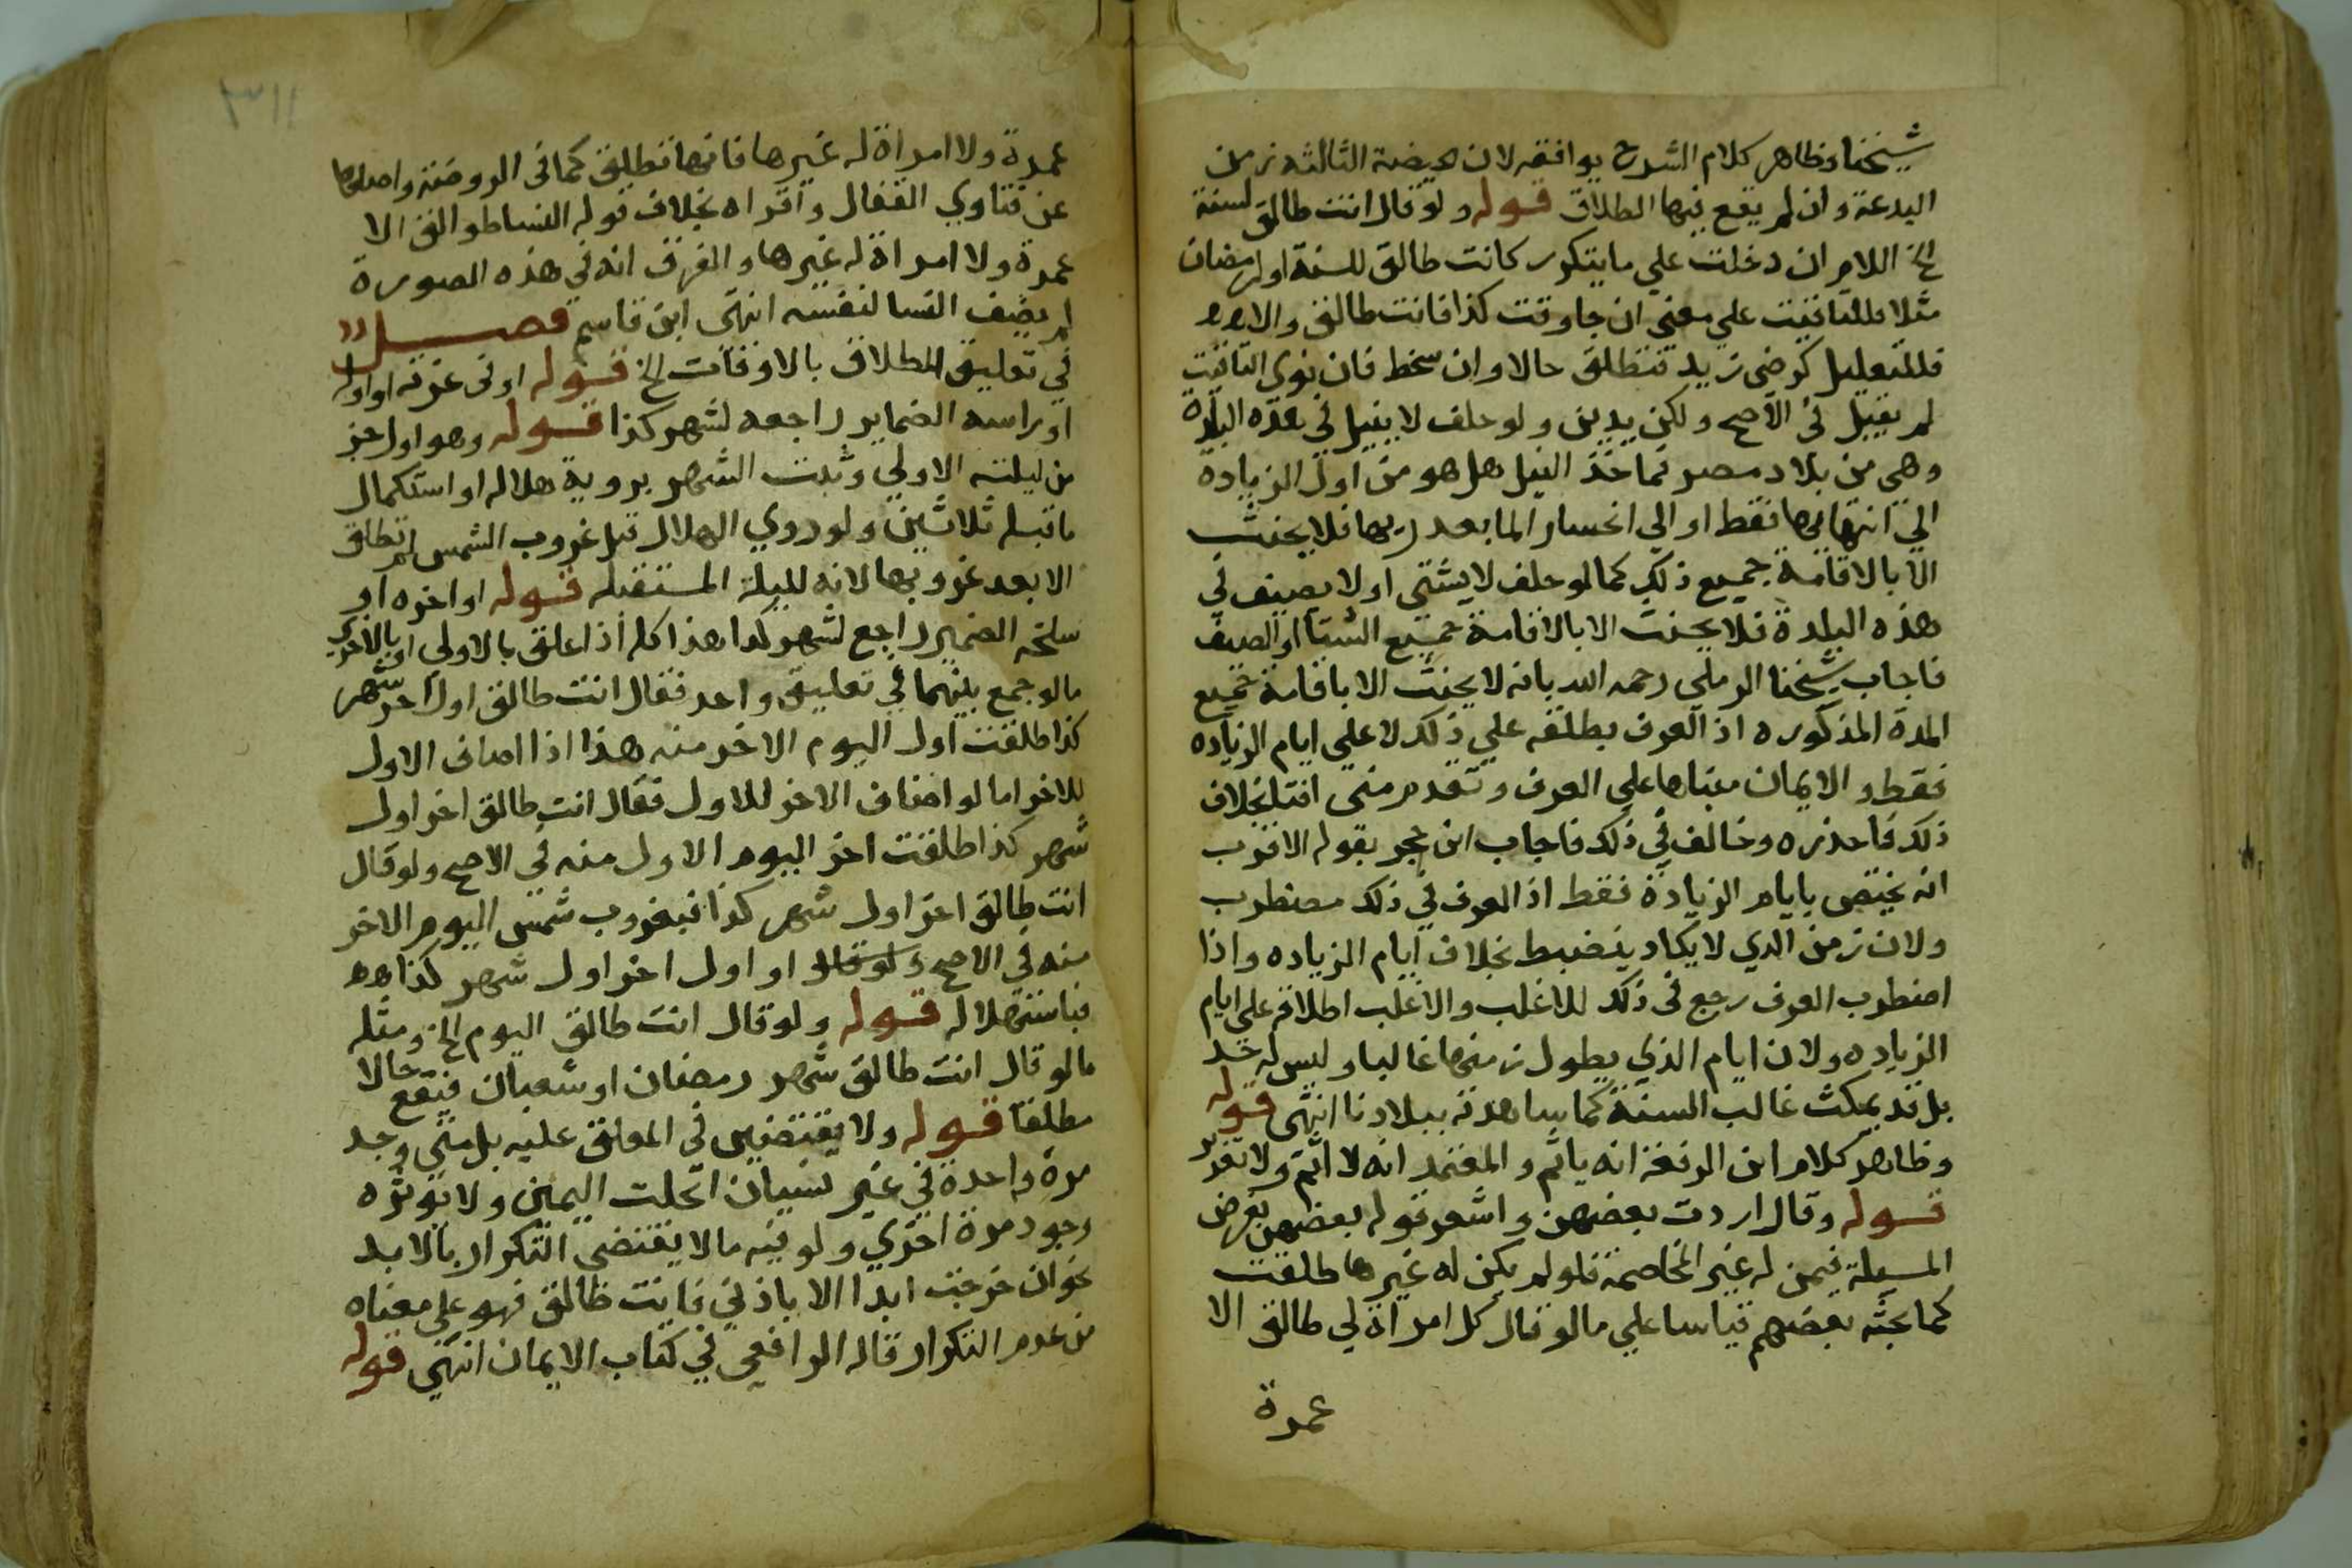 شيخنا وظاهر كلام الشرح يوافقه لان الحيضة الثالثه زمن
البدعة وان لم يقع فيها الطلاق قوله ولو قال انت طالق لسنة
الخ اللام ان دخلت علي ما يتكرر كانت طالق للسنة او لرمضان
مثلا فللتاقيت علي معني ان جا وقت كذا فانت طالق والا
فللتعليل كرضى زيد فتطلق حالا وان سخط فان نوي التاقيت
لم يقبل في الاصح ولكن يدين ولو حلف لا يقيل في هذه البلدة
وهي من بلاد مصر فما خذ النيل هل هو من اول الزياده
الي انتهايها فقط او الي انحسار الما بعد ريها فلا يحنث
الا بالاقامة جميع ذلك كما لو حلف لا يشتي او لا يصيف في
هذه البلدة فلا يحنث الا بالاقامة جميع الشتا او الصيف
فاجاب شيخنا الرملي رحمه الله بانه لا يحنث الا باقامة جميع
المدة المذكوره اذ العرف يطلقه علي ذلك لا علي ايام الزياده
فقط والايمان مبناها علي العرف وتقدم مني افتا بخلاف
ذلك فاحذره وخالف في ذلك فاجاب ابن حجر بقوله الاقرب
انه يختص بايام الزيادة فقط اذ العرف في ذلك مضطرب
ولان زمن الري لا يكاد ينضبط بخلاف ايام الزياده واذا
اضطرب العرف رجع في ذلك للاغلب والاغلب اطلاقه علي ايام
الزياده ولان ايام الذي يطول زمنها غالبا وليس له حد
بل قد يمكث غالب السنة كما شاهدته ببلادنا انتهى قوله
وظاهر كلام ابن الرفعة انه ياثم والمعتمد انه لا اثم ولا تعزير
قوله وقال اردت بعضهن واشعر قوله بعضهن بفرض
المسيلة فيمن له غير المخاصمة فلو لم يكن له غيرها طلقت
كما بحثه بعضهم قياسا علي ما لو قال كل امراة لي طالق الا
عمرة
٣١١
عمرة ولا امراة له غيرها فانها تطلق كما في الروضة واصلها
عن فتاوي القفال واقراه بخلاف قوله النسا طوالق الا
عمرة ولا امراة له غيرها والفرق انه في هذه الصورة
لم يضف النسا لنفسه انتهى ابن قاسم فصل
في تعليق الطلاق بالاوقات الخ قوله او في غرته او اوله
او راسه الضماير راجعه لشهر كذا قوله وهو اول جز
من ليلته الاولي وثبت الشهر بروية هلاله او استكمال
ما قبله ثلاثين ولو روي الهلال قبل غروب الشمس لم تطلق
الا بعد غروبها لانه لليلة المستقبله قوله او اخره او
سلخه الضمير راجع لشهر كذا هذا كله اذا علق بالاولي او بالاخري
ما لو جمع بينهما في تعليق واحد فقال انت طالق اول اخر شهر
كذا طلقت اول اليوم الاخر منه هذا اذا اضاف الاول
للاخر اما لو اضاف الاخر للاول فقال انت طالق اخر اول
شهر كذا طلقت اخر اليوم الاول منه في الاصح ولو قال
انت طالق اخر اول شهر كذا فبغروب شمس اليوم الاخر
منه في الاصح ولو قال او اول اخر اول شهر كذا
فباستهلاله قوله ولو قال انت طالق اليوم الخ ومثله
ما لو قال انت طالق شهر رمضان او شعبان فيقع حالا
مطلقا قوله ولا يقتضيين في المعلق عليه بل متي وجد
مرة واحدة في غير نسيان انحلت اليمين ولا يوثره
وجود مرة اخري ولو قيه مالا يقتضي التكرار بالابد
نحو ان خرجت ابدا الا باذني فانت طالق فهو علي معناه
من عدم التكرار قاله الرافعي في كتاب الايمان انتهي قوله